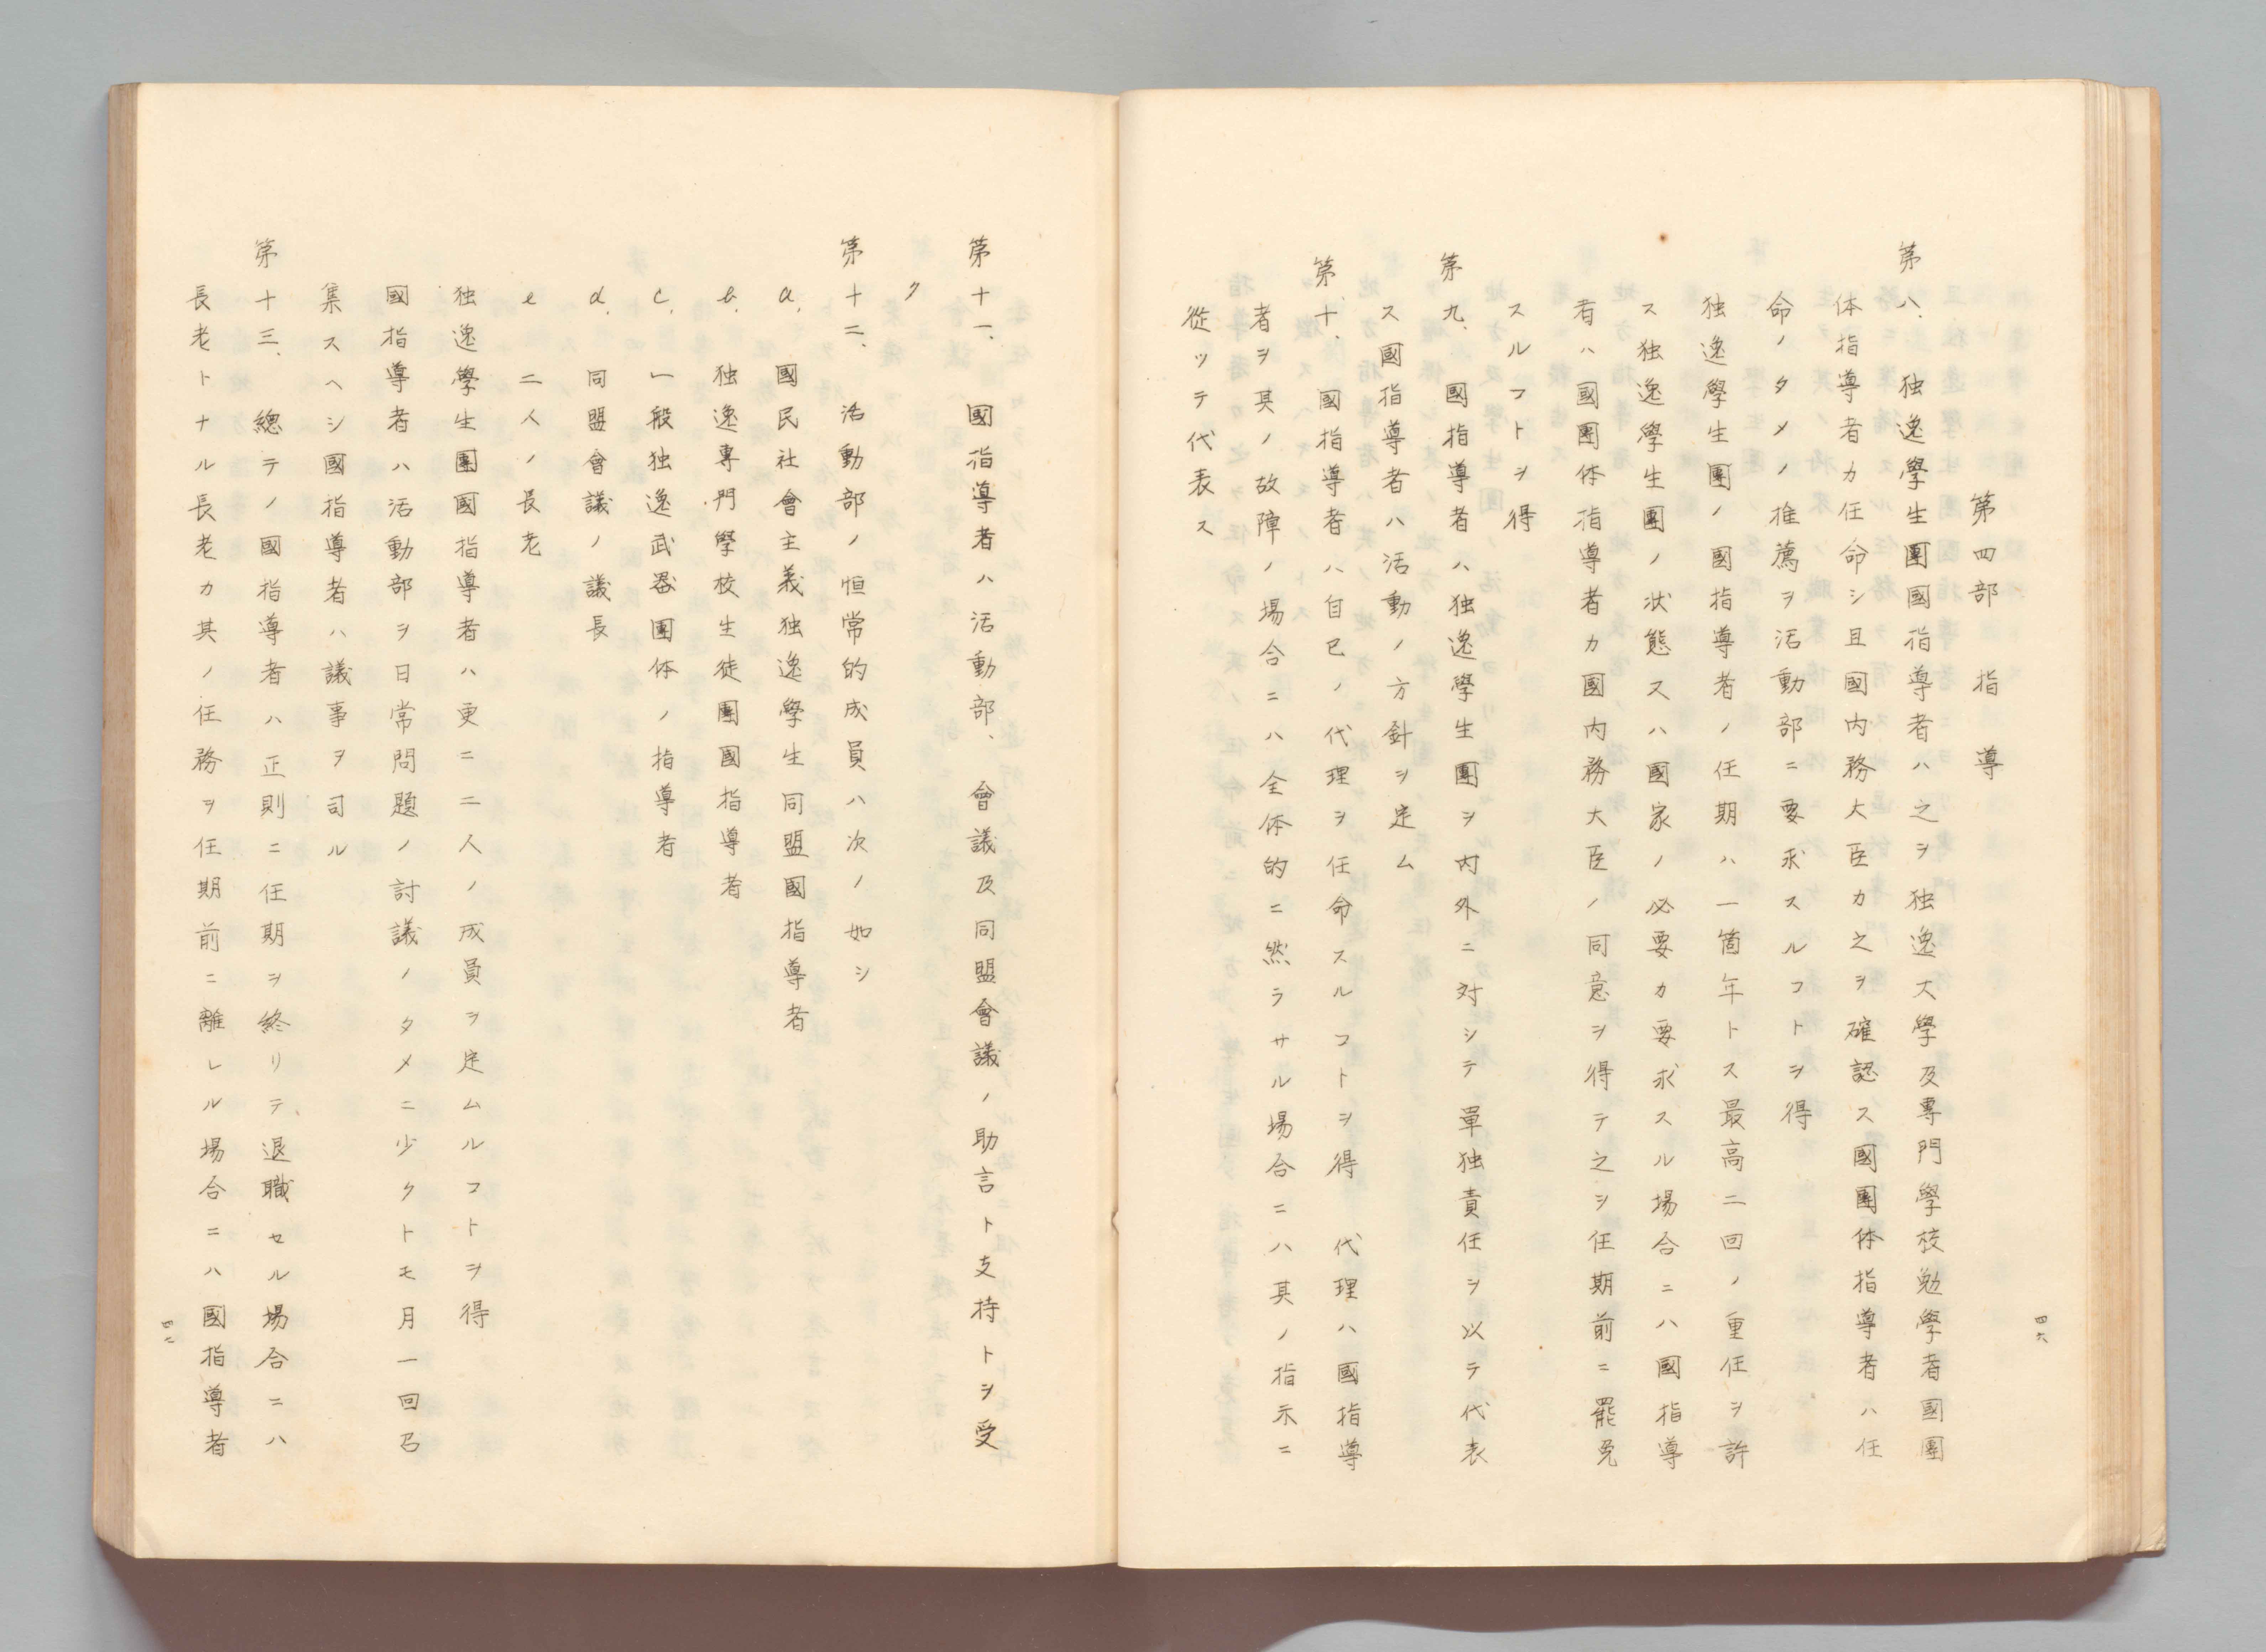 第四部　指導
第八、独逸學生團國指導者ハ之ヲ独逸大學及專門學校勉學者國團
体指導者カ任命シ且國内務大臣カ之ヲ確認ス國團体指導者ハ任
命ノタメノ推薦ヲ活動部ニ要求スルコトヲ得
独逸學生團ノ國指導者ノ任期ハ一箇年トス最高二回ノ重任ヲ許
ス独逸學生團ノ状態又ハ國家ノ必要カ要求スル場合ニハ國指導
者ハ國團体指導者カ國内務大臣ノ同意ヲ得テ之ヲ任期前ニ罷免
スルコトヲ得
第九、國指導者ハ独逸學生團ヲ内外ニ対シテ單独責任ヲ以テ代表
ス國指導者ハ活動ノ方針ヲ定ム
第十、國指導者ハ自己ノ代理ヲ任命スルコトヲ得　代理ハ國指導
者ヲ其ノ故障ノ場合ニハ全体的ニ然ラサル場合ニハ其ノ指示ニ
從ッテ代表ス
四六
第十一、國指導者ハ活動部、會議及同盟會議ノ助言ト支持トヲ受
ク
第十二、活動部ノ恒常的成員ハ次ノ如シ
a、國民社會主義独逸學生同盟國指導者
b、独逸專門學校生徒團國指導者
c、一般独逸武器團体ノ指導者
d、同盟會議ノ議長
e　二人ノ長老
独逸學生團國指導者ハ更ニ二人ノ成員ヲ定ムルコトヲ得
國指導者ハ活動部ヲ日常問題ノ討議ノタメニ少クトモ月一回召
集スヘシ國指導者ハ議事ヲ司ル
第十三、總テノ國指導者ハ正則ニ任期ヲ終リテ、退職セル場合ニハ
長老トナル長老カ其ノ任務ヲ任期前ニ離レル場合ニハ國指導者